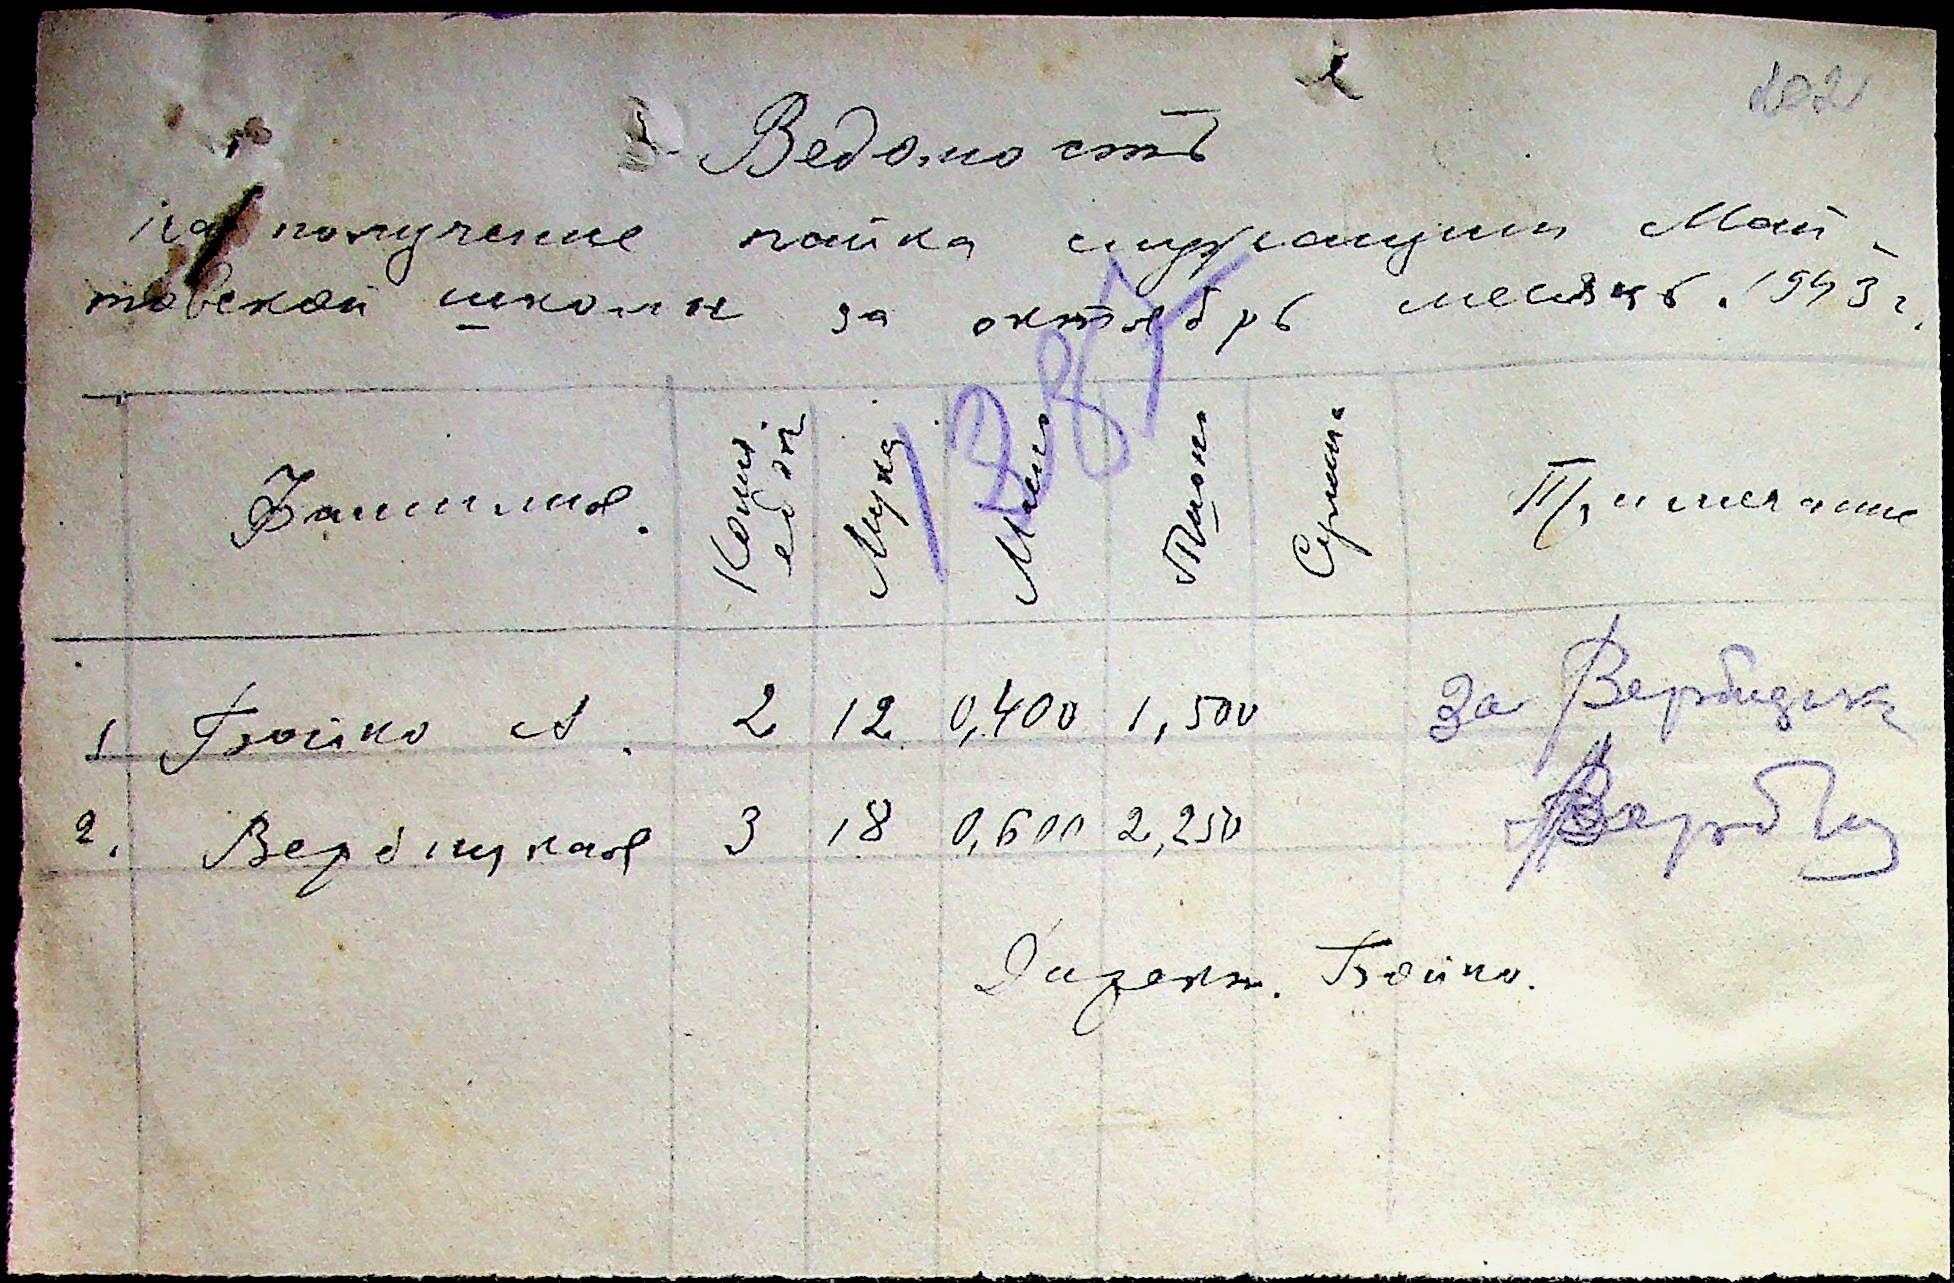 202
Ведомость
на получение пайка служащим Май-
товской школы за октябрь месяць. 1943 г.
1387
Фамилия. Колич. едок Мука Масло Пшоно Сумма Примечание
1 Бойко А. 2 12 0,400 1,500 За Вербицк
2. Вербицкая 3 18 0,600 2,250 Верби
Директ. Бойко.